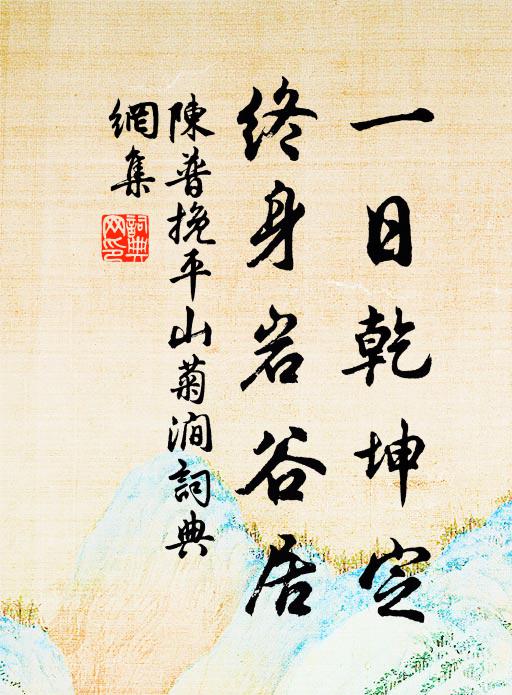 一日乾坤定
终身岩谷居
陳普挽平山菊澗詞典
網集
詞典
网印